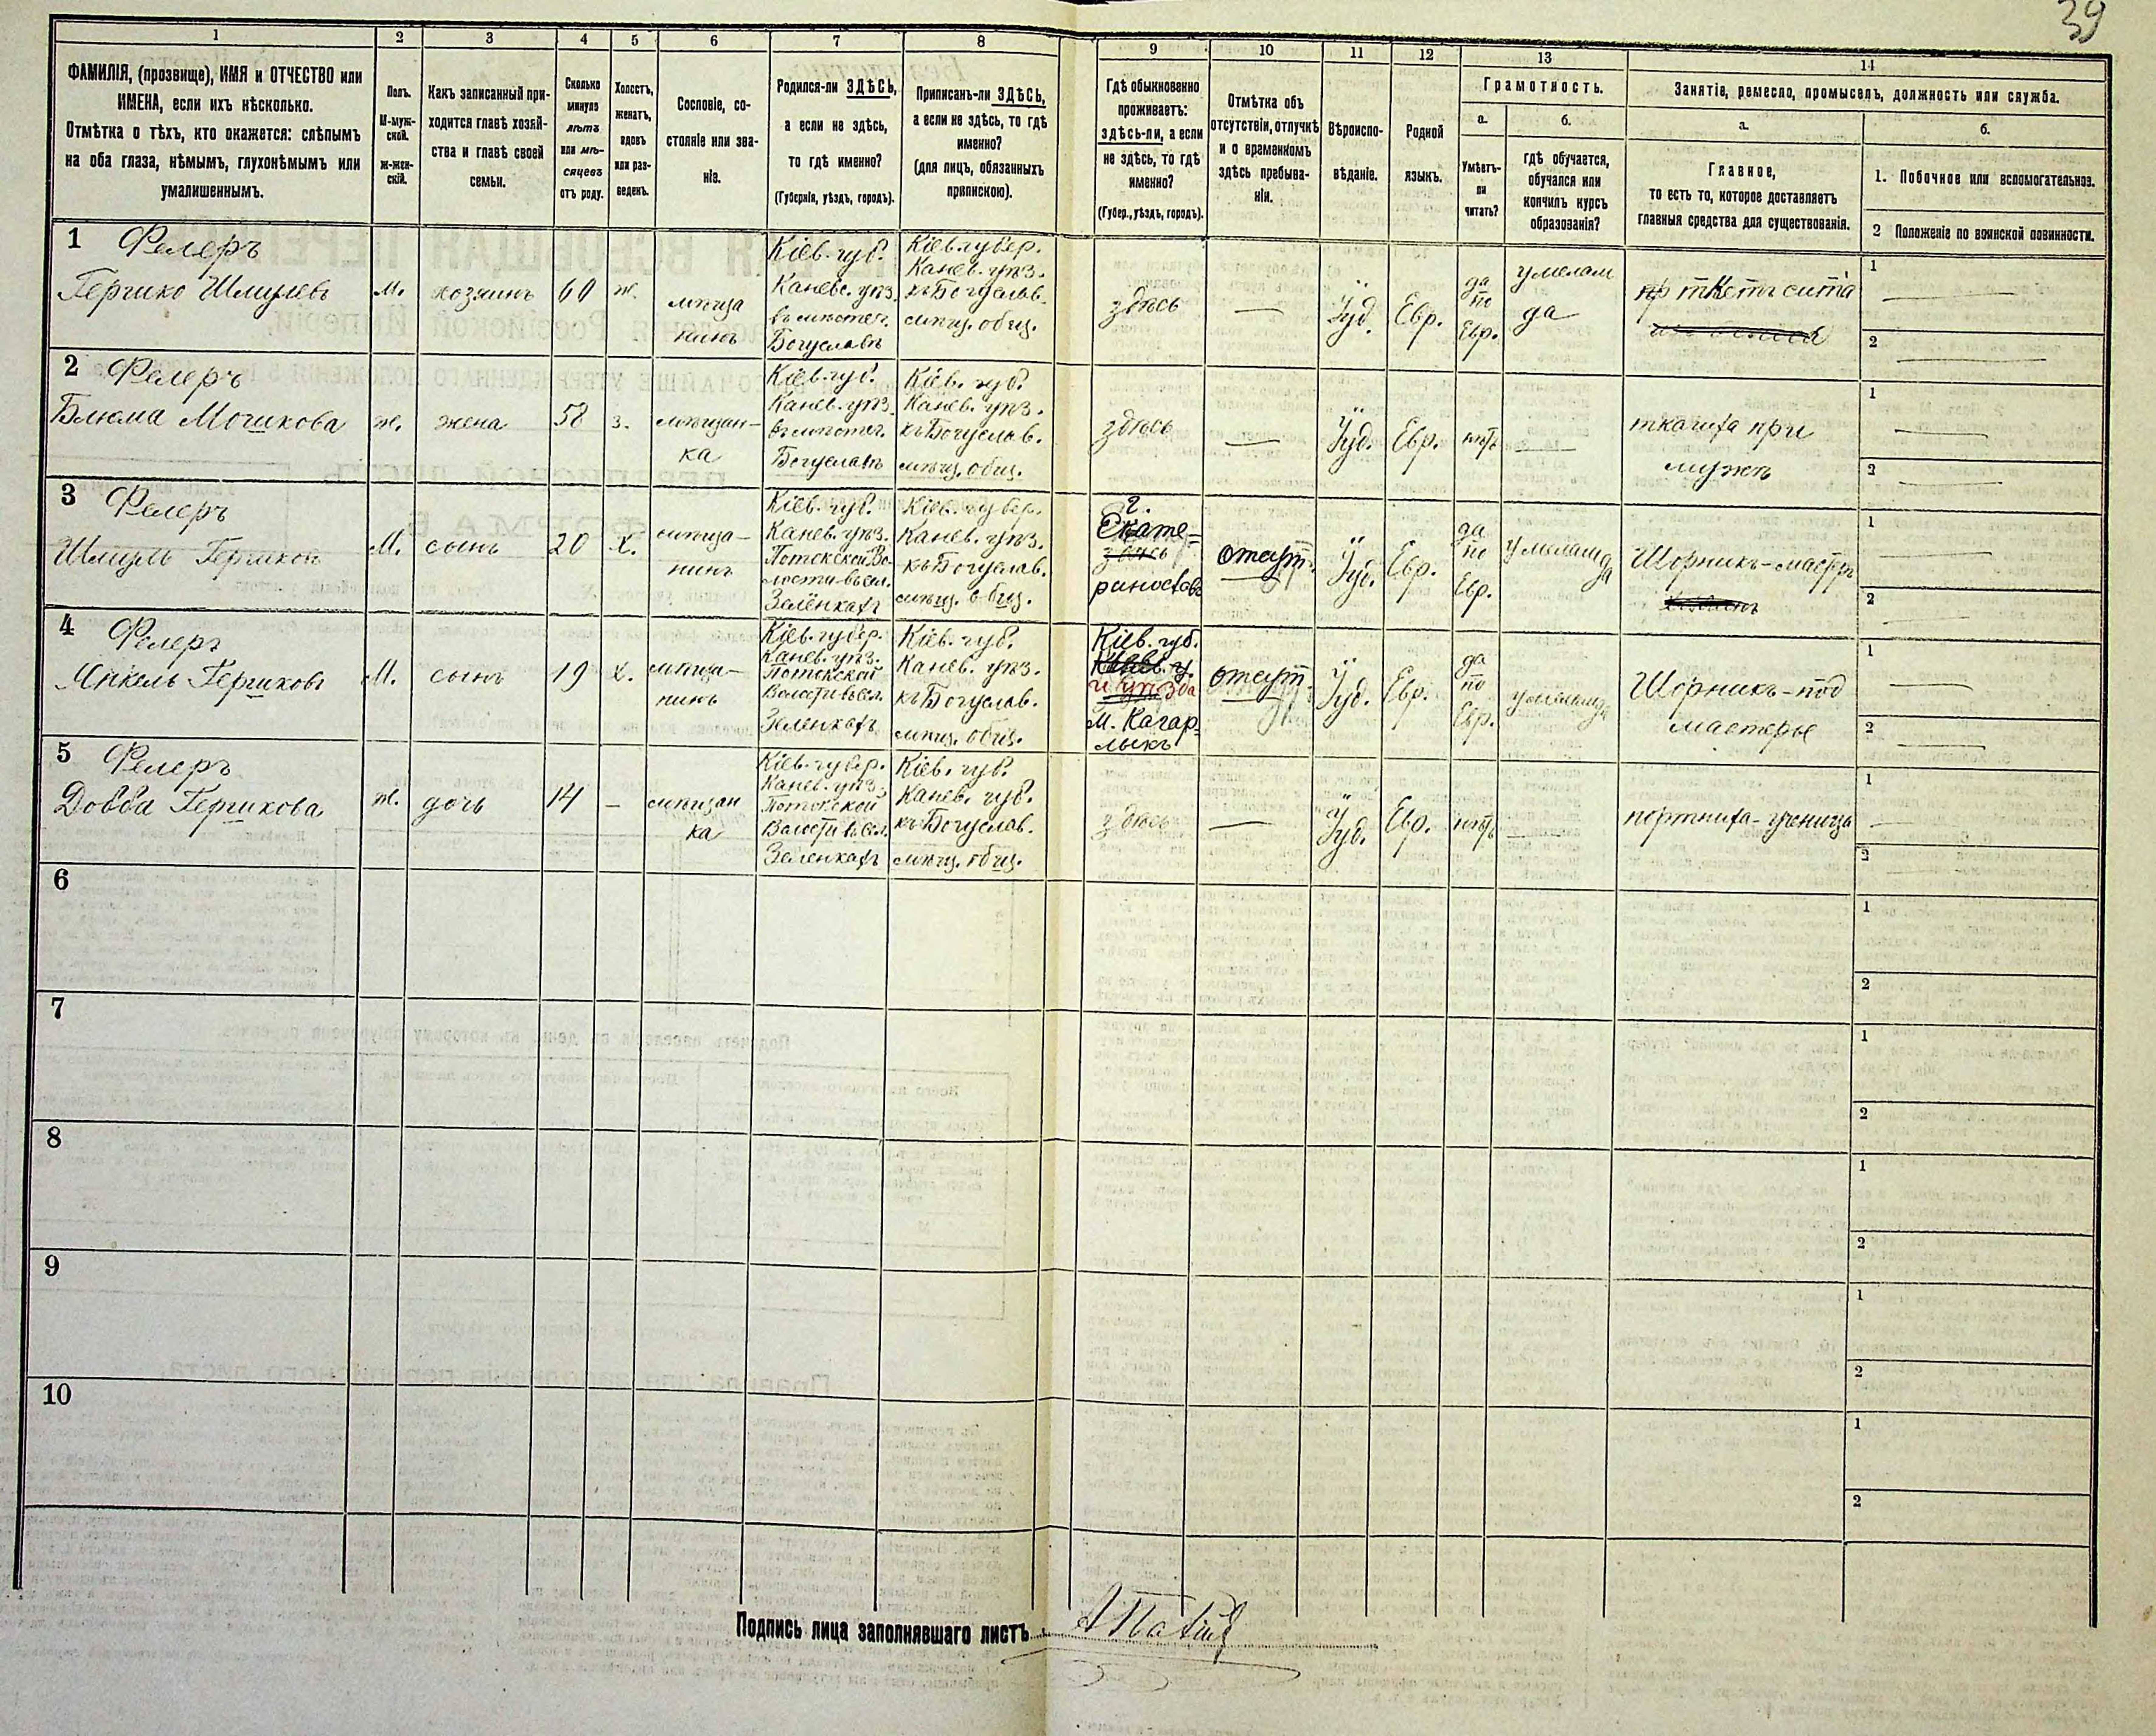 39
1 2 3 4 5 6 7 8 9 10 11 12 13 14
ФАМИЛІЯ, (прозвище), ИМЯ и ОТЧЕСТВО или
ИМЕНА, если ихъ нѣсколько.
Отмѣтка о тѣхъ, кто окажется: слѣпымъ
на оба глаза, нѣмымъ, глухонѣмымъ или
умалишеннымъ.
Полъ.
М-муж-
ской.
ж-жен-
скій.
Какъ записанный при-
ходится главѣ хозяй-
ства и главѣ своей
семьи.
Сколько
минуло
лѣтъ
или мѣ-
сяцевъ
отъ роду.
Холостъ,
женатъ,
вдовъ
или раз-
веденъ.
Сословіе, со-
стояніе или зва-
ніе.
Родился-ли ЗДѢСЬ,
а если не здѣсь,
то гдѣ именно?
(Губернія, уѣздъ, городъ).
Приписанъ-ли ЗДѢСЬ,
а если не здѣсь, то гдѣ
именно?
(для лицъ, обязанныхъ
припискою).
Гдѣ обыкновенно
проживаетъ:
здѣсь-ли, а если
не здѣсь, то гдѣ
именно?
(Губер., уѣздъ, городъ).
Отмѣтка объ
отсутствіи, отлучкѣ
и о временномъ
здѣсь пребыва-
ніи.
Вѣроиспо-
вѣданіе.
Родной
языкъ.
Грамотность.
а.
Умѣетъ-
ли
читать?
б.
гдѣ обучается,
обучался или
кончилъ курсъ
образованія?
Занятіе, ремесло, промыселъ, должность или служба.
а.
Главное,
то есть то, которое доставляетъ
главныя средства для существованія.
б.
1. Побочное или вспомогательное.
2 Положеніе по воинской повинности.
1 Фелеръ
Гершко Шмулевъ
м.
хозяинъ
60
ж.
мѣща
нинъ
Кіев. губ.
Каневс. уѣз.
въ мѣстеч.
Богуславѣ
Кіев. губер.
Канев. уѣз.
къ Богуслав.
мѣщ. общ.
здѣсь
—
Іуд.
Евр.
да
по
Евр.
у мелам
да
ткетъ сита
1 —
2 —
2 Фелеръ
Блюма Мошкова
ж.
жена
58
з.
мѣщан-
ка
Кіев. губ.
Канев. уѣз.
въ мѣстеч.
Богуславѣ
Кіев. губ.
Канев. уѣз.
къ Богуслав.
мѣщ. общ.
здѣсь
—
Іуд.
Евр.
нѣтъ
—
ткачиха при
мужѣ
1 —
2 —
3 Фелеръ
Шмуль Гершковъ
М.
сынъ
20
х.
мѣща-
нинъ
Кіев. губ.
Канев. уѣз.
Потокской Во-
лости въ сел.
Зелёнкахъ
Кіев. губер.
Канев. уѣз.
къ Богуслав.
мѣщ. общ.
г.
Екате=
здѣсь
ринославъ
отсут.
Іуд.
Евр.
да
по
Евр.
у мелам
да
Шорникъ-мастеръ
1 —
2 —
4 Фелеръ
Гершковъ
М.
сынъ
19
х.
мѣща-
нинъ
Кіев. губер.
Канев. уѣз.
Потокской
Волости въ сел.
Зеленкахъ
Кіев. губ.
Канев. уѣз.
къ Богуслав.
мѣщ. общ.
Кіев. губ.
Канев. у.
и уѣзда
м. Кагар-
лыкъ
отсут.
Іуд.
Евр.
да
по
Евр.
у меламда
Шорникъ-под
мастерье
1 —
2 —
5 Фелеръ
Довба Гершкова
ж.
дочь
14
—
мѣщан
ка
Кіев. губер.
Канев. уѣз.
Потокской
Волости въ сел.
Зеленкахъ
Кіев. губ.
Канев. губ.
къ Богуслав.
мѣщ. общ.
здѣсь
—
Іуд.
Евр.
нѣтъ
—
портниха-ученица
1 —
2 —
6
1
2
7
1
2
8
1
2
9
1
2
10
1
2
Подпись лица заполнявшаго листъ